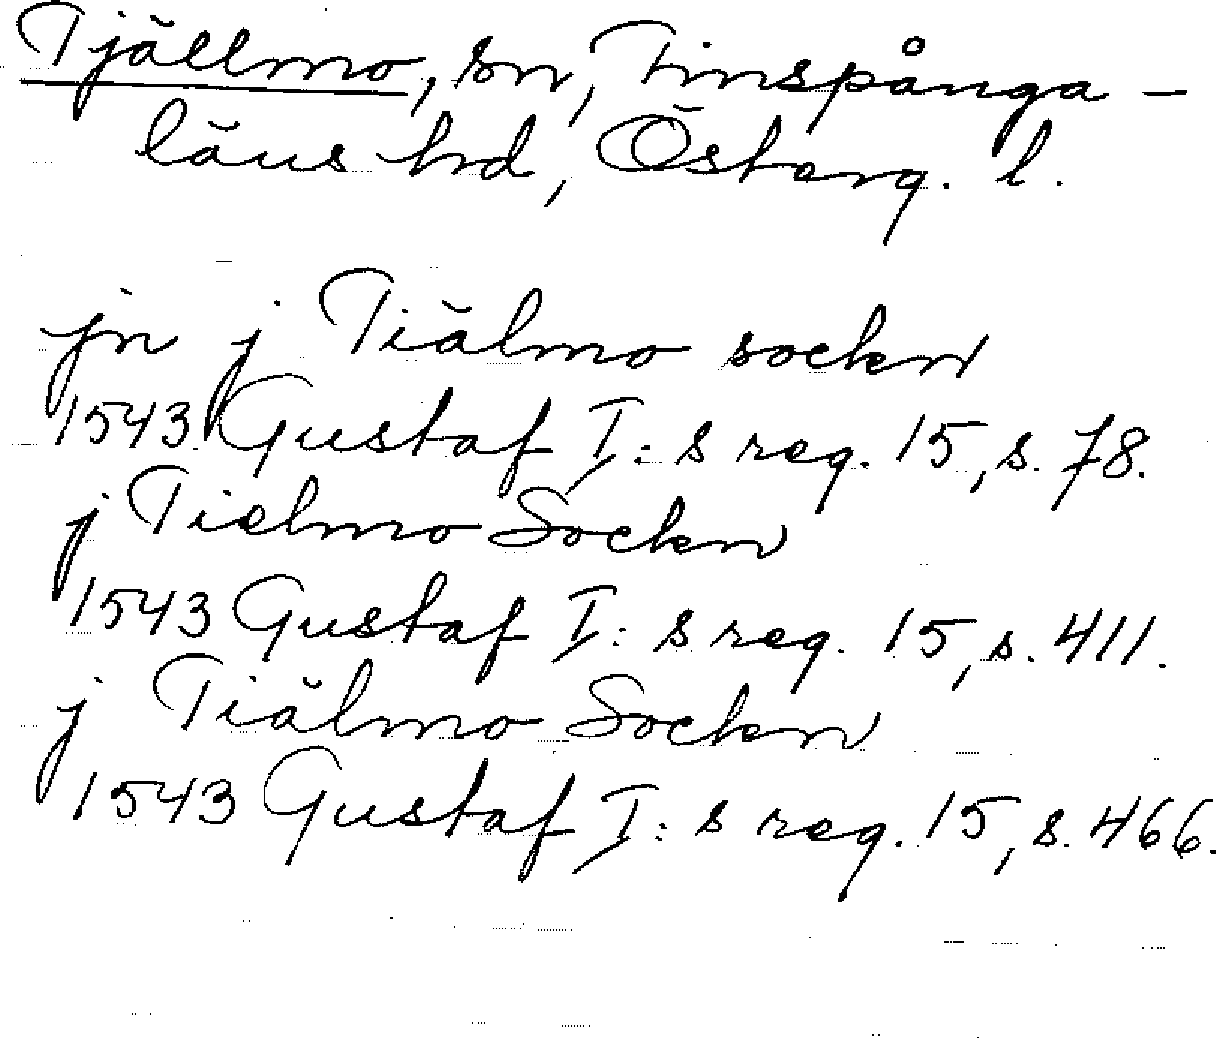 Tjällmo, sn, Finspånga-
läns hd, Österg. l.
jn j Tiälmo sockn
1543 Gustaf I:s reg. 15, s. 78.
j Tielmo Sockn
1543 Gustaf I:s reg. 15, s. 411.
j Tiälmo Sockn
1543 Gustaf I:s reg. 15, s. 466.